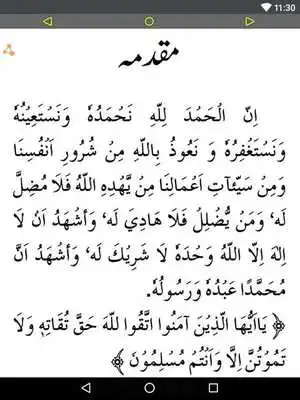 11:30
مقدمہ
اِنّ الْحَمْدَ لِلّٰهِ نَحْمَدُهٗ وَنَسْتَعِيْنُهٗ
وَنَسْتَغْفِرُهٗ وَ نَعُوذُ بِاللّٰهِ مِنْ شُرُورِ اَنْفُسِنَا
وَمِنْ سَيِّئآتِ اَعْمَالِنَا مِنْ يَّهْدِهِ اللّٰهُ فَلَا مُضِلَّ
لَه، وَمَنْ يُّضْلِلْ فَلَا هَادِيَ لَه، وَأشْهَدُ اَنْ لَا
اِلٰهَ اِلَّا اللّٰهُ وَحْدَهٗ لَا شَرِيْكَ لَه، وَأشْهَدُ اَنَّ
مُحَمَّدًا عَبْدُهٗ وَرَسُولُهٗ.
﴿ يَااَيُّهَا الَّذِيْنَ آمَنُوا اتَّقُوا للّٰهَ حَقَّ تُقَاتِهٖ وَلَا
تَمُوْتُنَّ اِلَّا وَاَنْتُمْ مُسْلِمُوْنَ ﴾